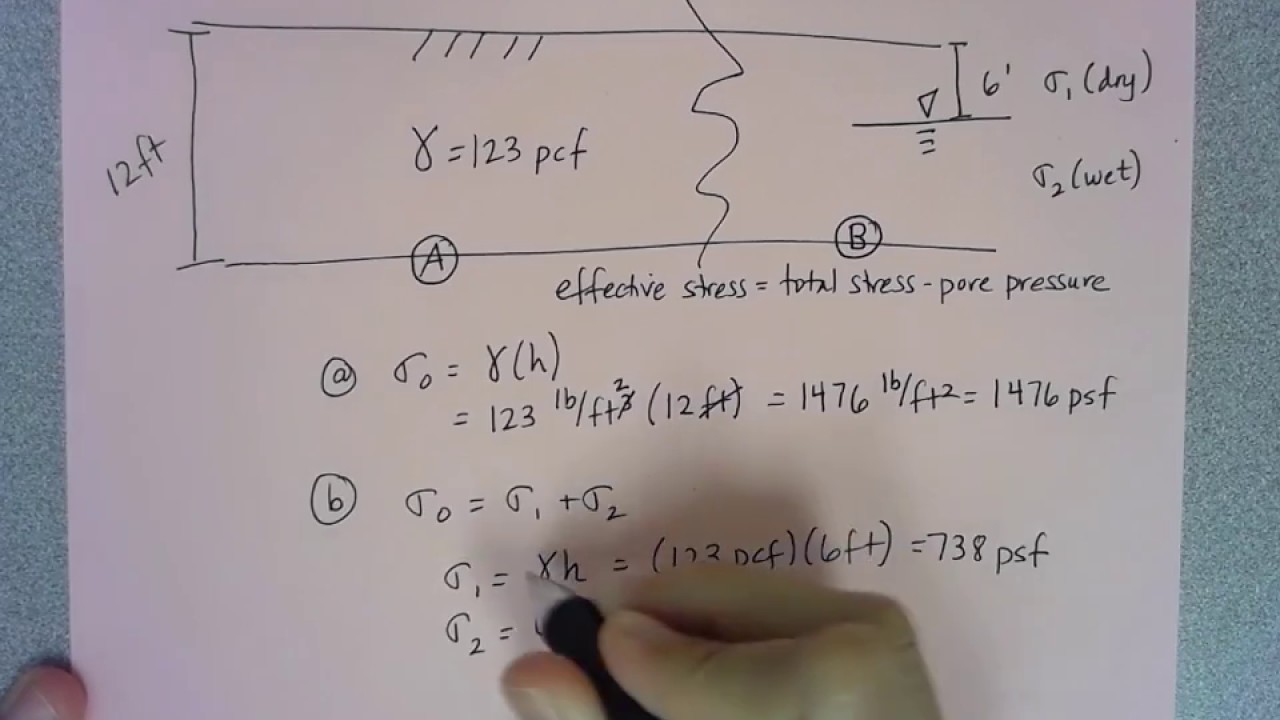 12ft
γ = 123 pcf
6' σ₁ (dry)
σ₂ (wet)
A
B
effective stress = total stress - pore pressure
ⓐ σ₀ = γ(h)
= 123 lb/ft² (12ft) = 1476 lb/ft² = 1476 psf
ⓑ σ₀ = σ₁ + σ₂
σ₁ = γh = (123 pcf)(6ft) = 738 psf
σ₂ =